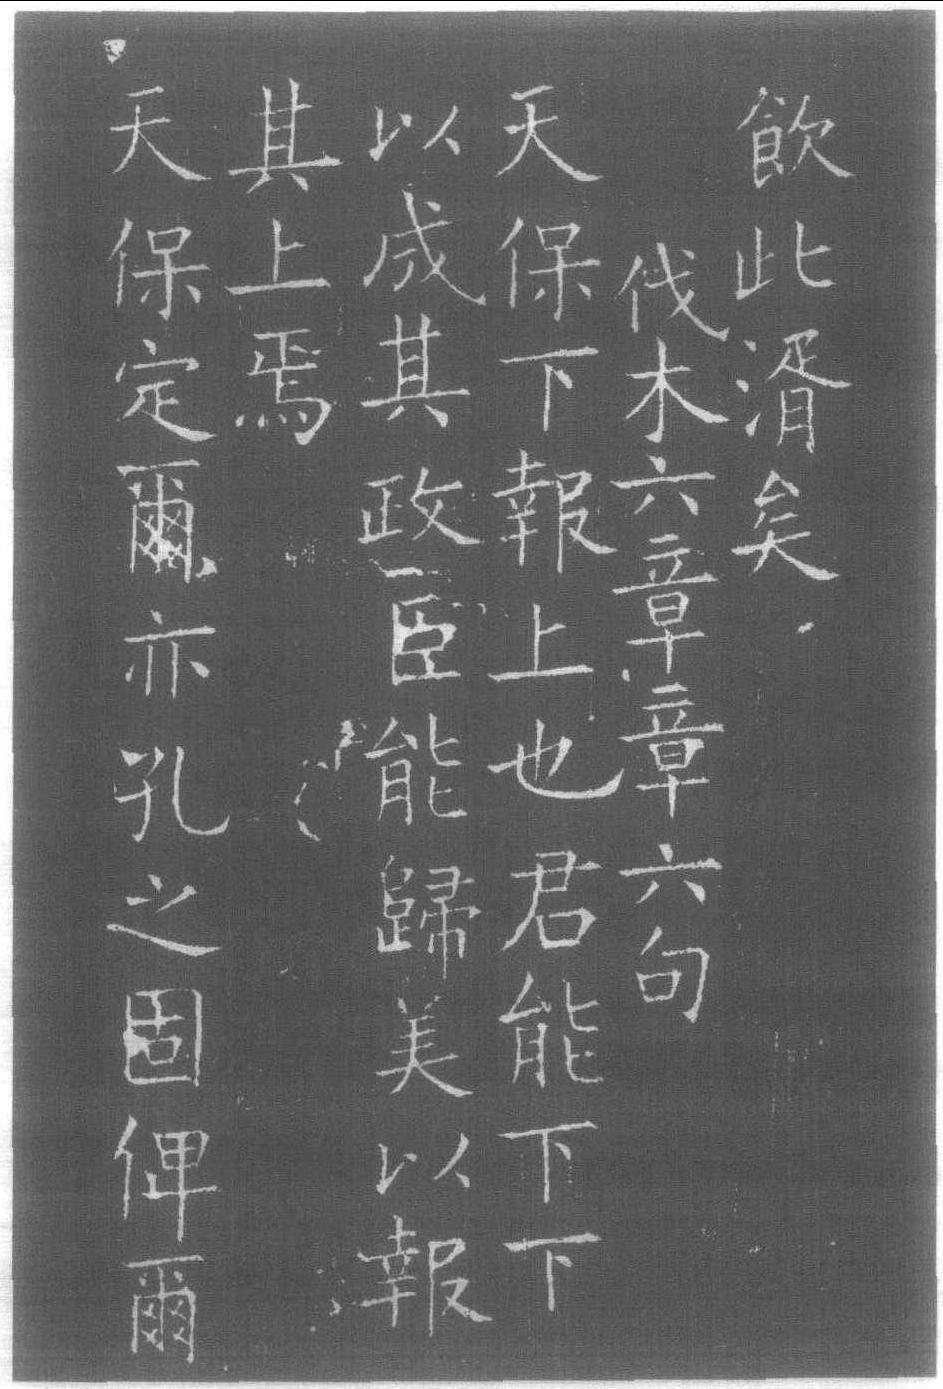 飲此湑矣
伐木六章章六句
天保下報上也君能下下
以成其政臣能歸美以報
其上焉
天保定爾亦孔之固俾爾